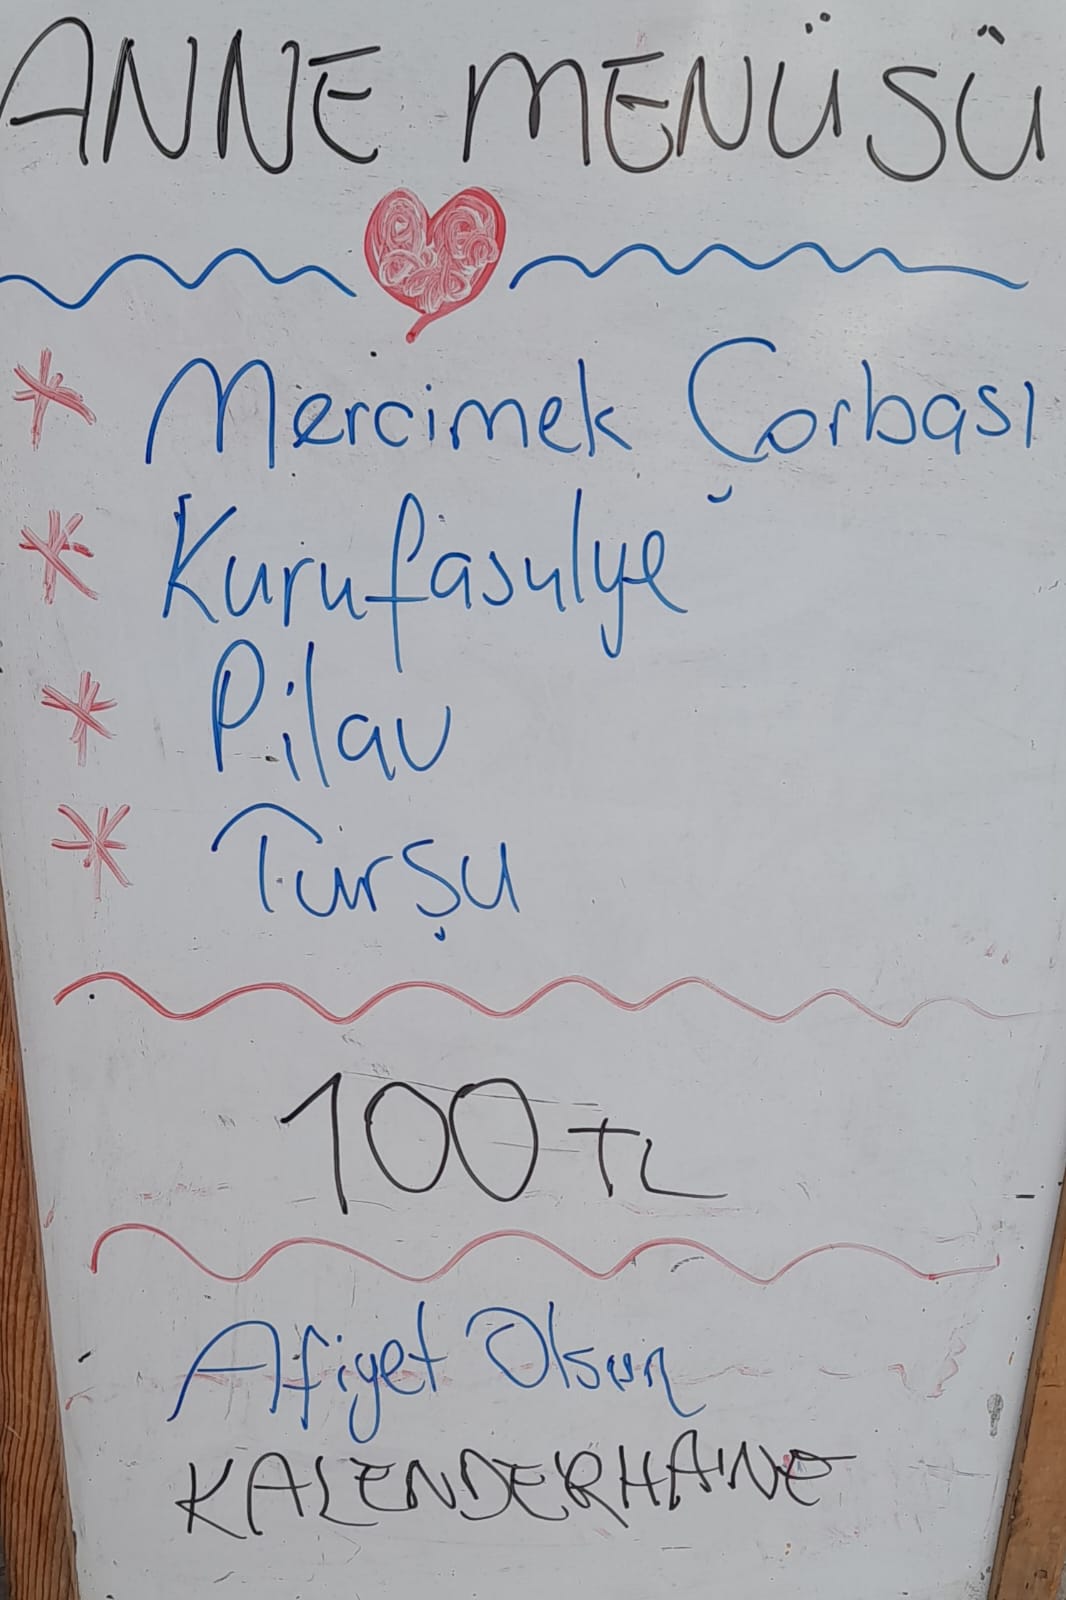 ANNE MENÜSÜ
* Mercimek Çorbası
* Kurufasulye
* Pilav
* Turşu
100 TL
Afiyet Olsun
KALENDERHANE